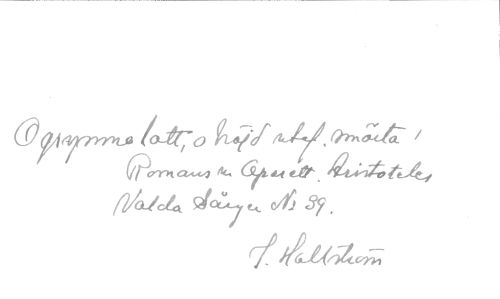 O grymma lott, o höjd utaf smärta!
Romans u Operett. Aristoteles
Valda Sånger No 39.
I. Hallström